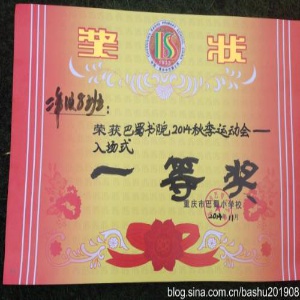 奖 状
二年级8班:
荣获巴蜀书院2014秋季运动会一
入场式
一等奖
重庆市巴蜀小学校
2014.11月
blog.sina.com.cn/bashu201908